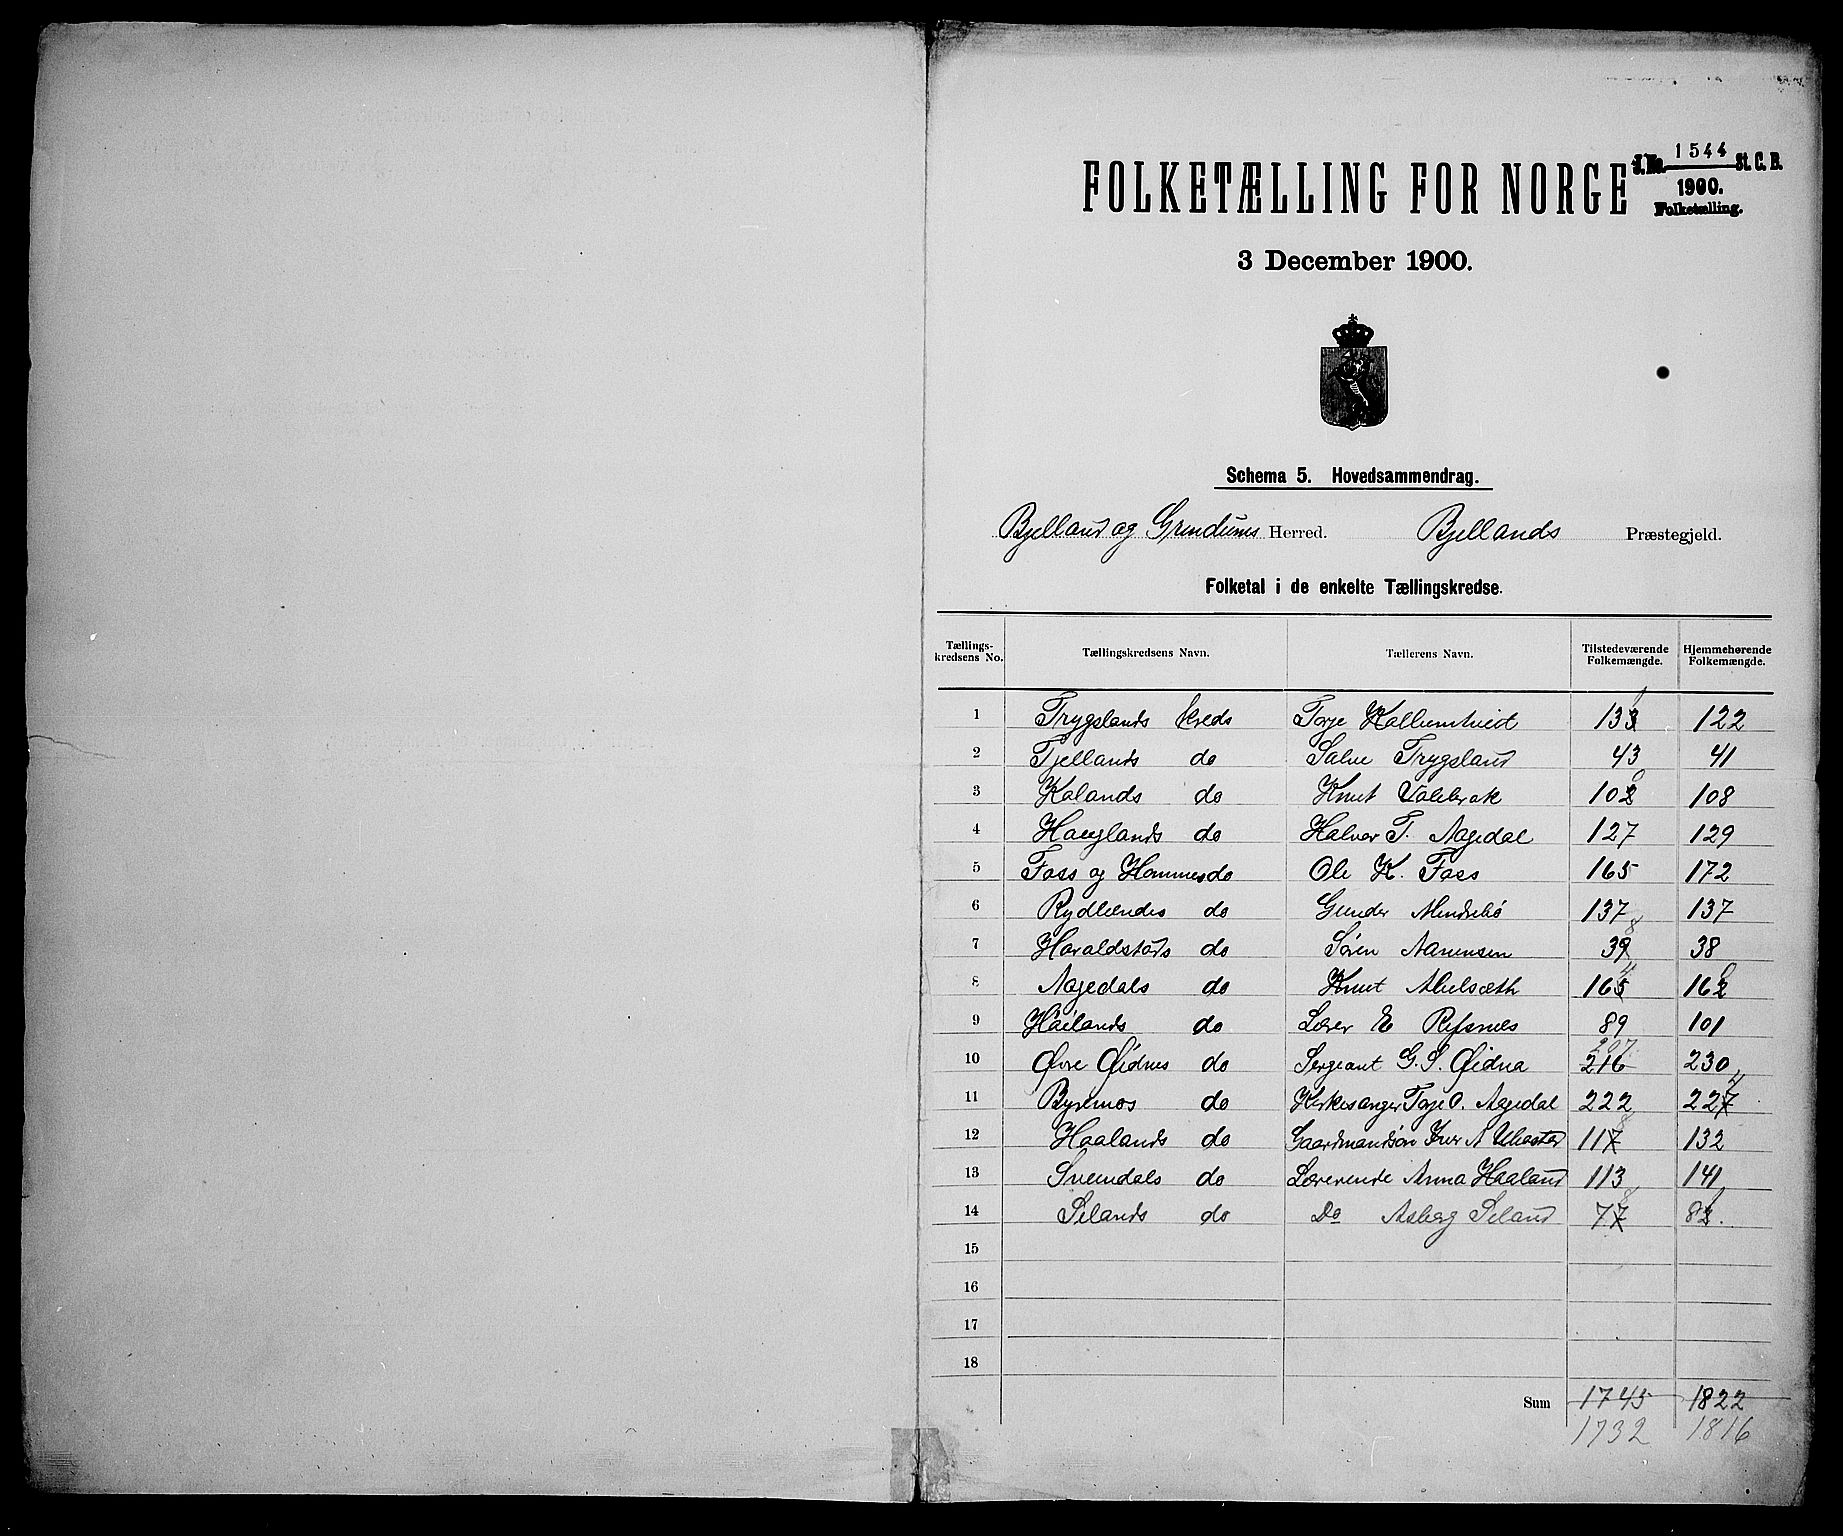 FOLKETÆLLING FOR NORGE
J.No. 1544 St. C. B.
1900.
Folketælling.
3 December 1900.
Schema 5. Hovedsammendrag.
Bjelland og Grindums Herred. Bjellands Præstegjeld.
Folketal i de enkelte Tællingskredse.
Tællings-kredsens No. Tællingskredsens Navn. Tællerens Navn. Tilstedeværende Folkemængde. Hjemmehørende Folkemængde.
1 Trygslands Kreds Torje 133 1 122
2 Tjellands do Salve Trygsland 43 41
3 Kalands do Knut 102 0 108
4 Hauglands do Halvor T. Aagedal 127 129
5 Foss og Hommes do Ole K. Foss 165 172
6 Rydlændes do Gunder 137 137
7 Haraldstads do Søren Aanensen 39 8 38
8 Aagedals do Knut Abelsæth 165 4 162 0
9 Håilands do Lærer E Refsnes 89 101
10 Øvre Øidnes do Sergeant G. S. Øidna 216 207 230
11 Byremos do Kirkesanger Torje O. Aagedal 222 227 4
12 Haalands do Gaardmandsøn 117 8 132
13 Sveindals do Lærerinde Anna Haaland 113 141
14 Selands do Do Asberg Seland 77 8 82 1.
15
16
17
18
Sum 1745 1822
1732 1816